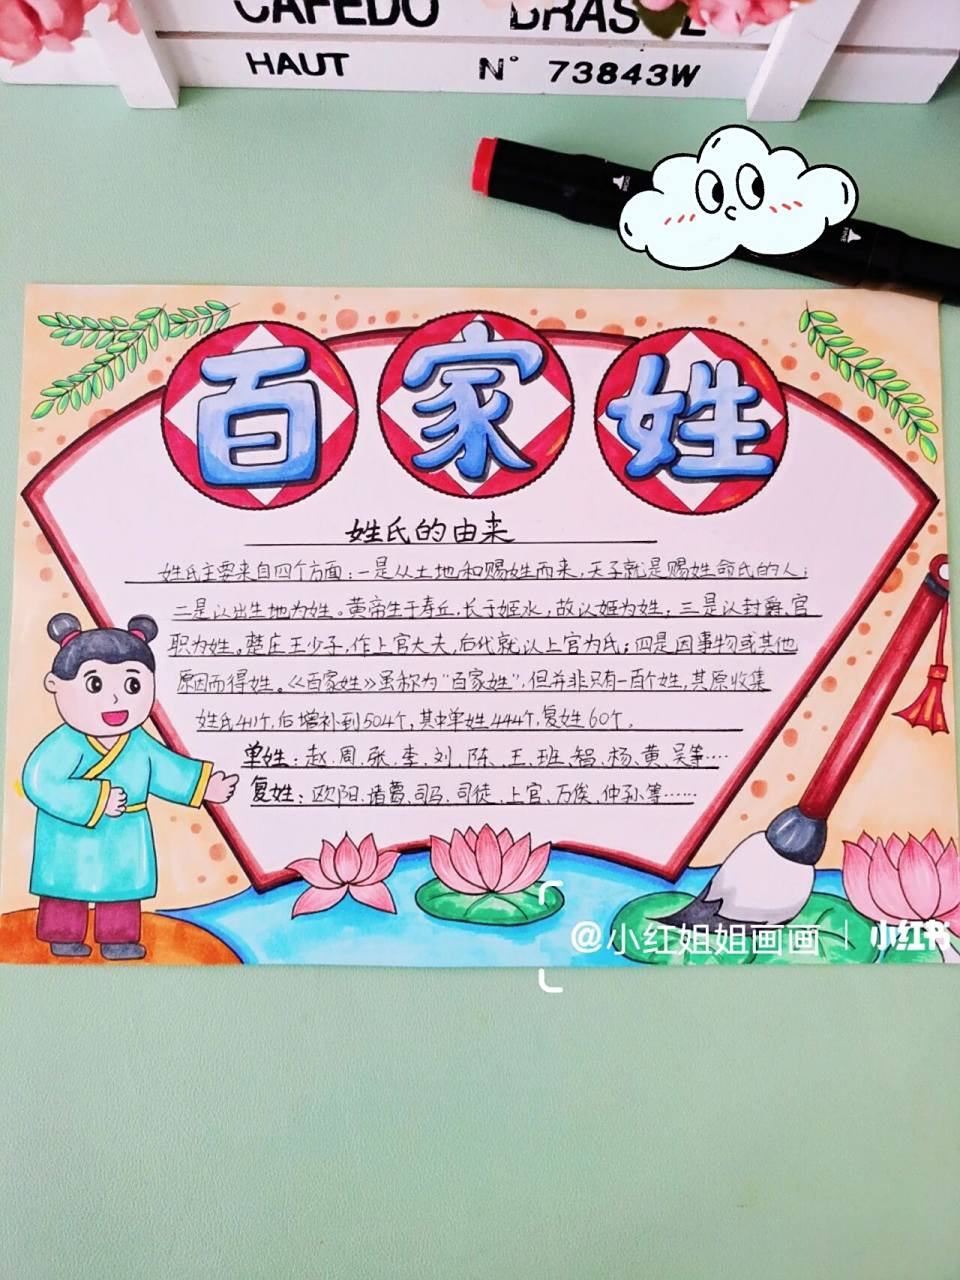 CAFEDO BRAS
HAUT N° 73843W
百家姓
姓氏的由来
姓氏主要来自四个方面:一是从土地和赐姓而来,天子就是赐姓命氏的人;
二是以出生地为姓。黄帝生于寿丘,长于姬水,故以姬为姓;三是以封爵、官
职为姓。楚庄王少子,作上官大夫,后代就以上官为氏;四是因事物或其他
原因而得姓。《百家姓》虽称为"百家姓",但并非只有一百个姓,其原收集
姓氏411个,后增补到504个,其中单姓444个,复姓60个。
单姓:赵、周、张、李、刘、陈、王、班、智、杨、黄、吴等……
复姓:欧阳、诸葛、司马、司徒、上官、万俟、仲孙等……
@小红姐姐画画 | 小红书